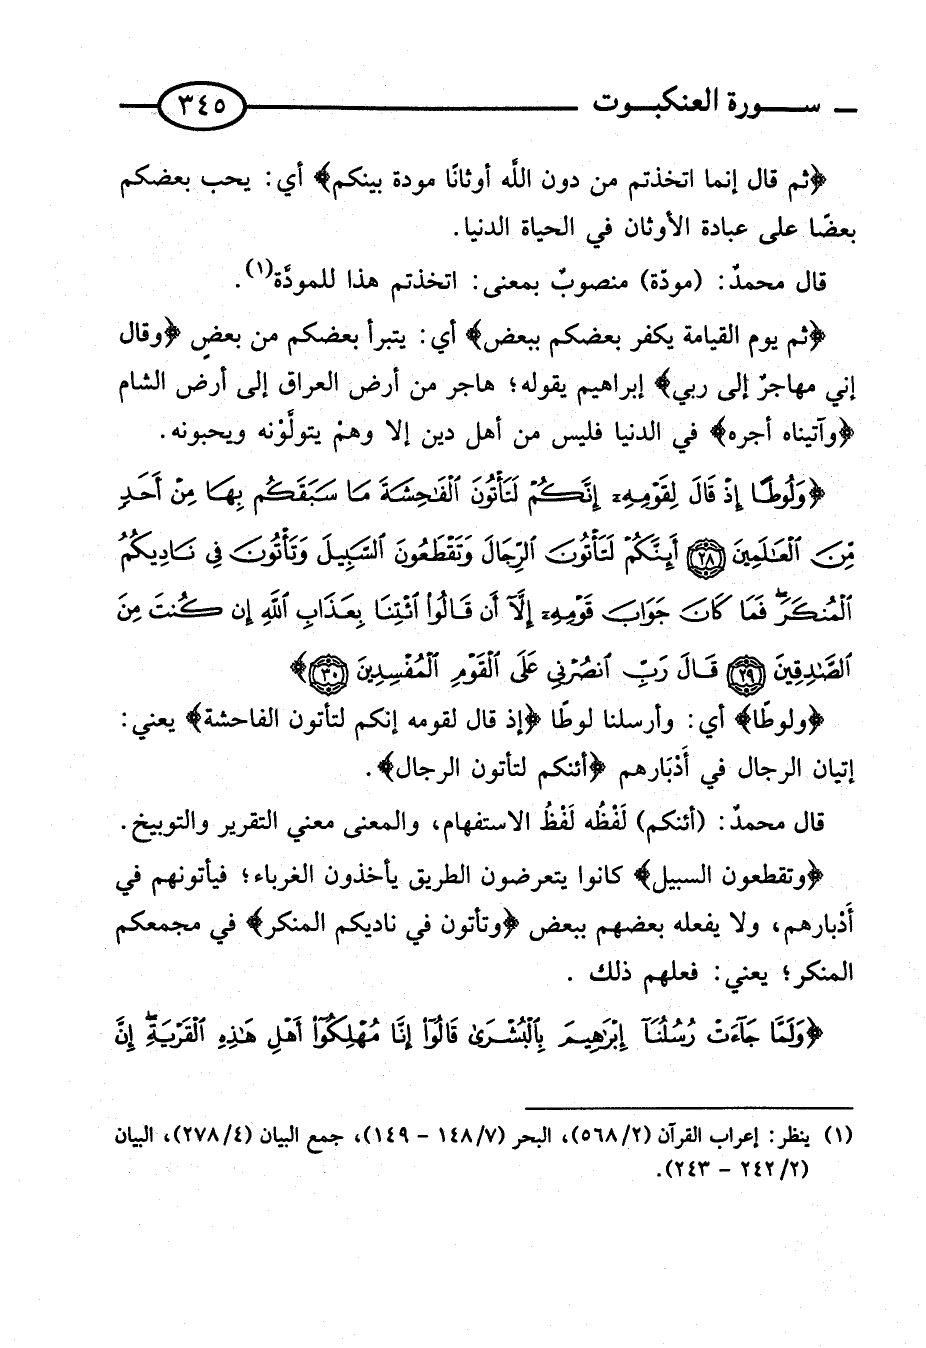 سورة العنكبوت ٣٤٥
﴿ثم قال إنما اتخذتم من دون اللَّه أوثانًا مودة بينكم﴾ أي: يحب بعضكم
بعضًا على عبادة الأوثان في الحياة الدنيا.
قال محمدٌ: (مودّة) منصوبٌ بمعنى: اتخذتم هذا للمودَّة(١).
﴿ثم يوم القيامة يكفر بعضكم ببعض﴾ أي: يتبرأ بعضكم من بعضٍ ﴿وقال
إني مهاجرٌ إلى ربي﴾ إبراهيم يقوله؛ هاجر من أرض العراق إلى أرض الشام
﴿وآتيناه أجره﴾ في الدنيا فليس من أهل دين إلا وهمْ يتولَّوْنه ويحبونه.
﴿وَلُوطًا إِذْ قَالَ لِقَوْمِهِۦ إِنَّكُمْ لَتَأْتُونَ ٱلْفَٰحِشَةَ مَا سَبَقَكُم بِهَا مِنْ أَحَدٍ
مِّنَ ٱلْعَٰلَمِينَ ٢٨ أَئِنَّكُمْ لَتَأْتُونَ ٱلرِّجَالَ وَتَقْطَعُونَ ٱلسَّبِيلَ وَتَأْتُونَ فِي نَادِيكُمُ
ٱلْمُنكَرَ ۖ فَمَا كَانَ جَوَابَ قَوْمِهِۦٓ إِلَّآ أَن قَالُوا۟ ٱئْتِنَا بِعَذَابِ ٱللَّهِ إِن كُنتَ مِنَ
ٱلصَّٰدِقِينَ ٢٩ قَالَ رَبِّ ٱنصُرْنِي عَلَى ٱلْقَوْمِ ٱلْمُفْسِدِينَ ٣٠﴾
﴿ولوطًا﴾ أي: وأرسلنا لوطًا ﴿إذ قال لقومه إنكم لتأتون الفاحشة﴾ يعني:
إتيان الرجال في أَدْبَارهم ﴿أئنكم لتأتون الرجال﴾.
قال محمدٌ: (أئنكم) لَفْظُه لَفْظُ الاستفهام، والمعنى معني التقرير والتوبيخ.
﴿وتقطعون السبيل﴾ كانوا يتعرضون الطريق يأخذون الغرباء؛ فيأتونهم في
أَدْبارهم، ولا يفعله بعضهم ببعض ﴿وتأتون في ناديكم المنكر﴾ في مجمعكم
المنكر؛ يعني: فعلهم ذلك .
﴿وَلَمَّا جَآءَتْ رُسُلُنَآ إِبْرَٰهِيمَ بِٱلْبُشْرَىٰ قَالُوٓا۟ إِنَّا مُهْلِكُوٓا۟ أَهْلِ هَٰذِهِ ٱلْقَرْيَةِ ۖ إِنَّ
(١) ينظر: إعراب القرآن (٥٦٨/٢)، البحر (١٤٨/٧ – ١٤٩)، جمع البيان (٢٧٨/٤)، البيان
(٢٤٢/٢ – ٢٤٣).